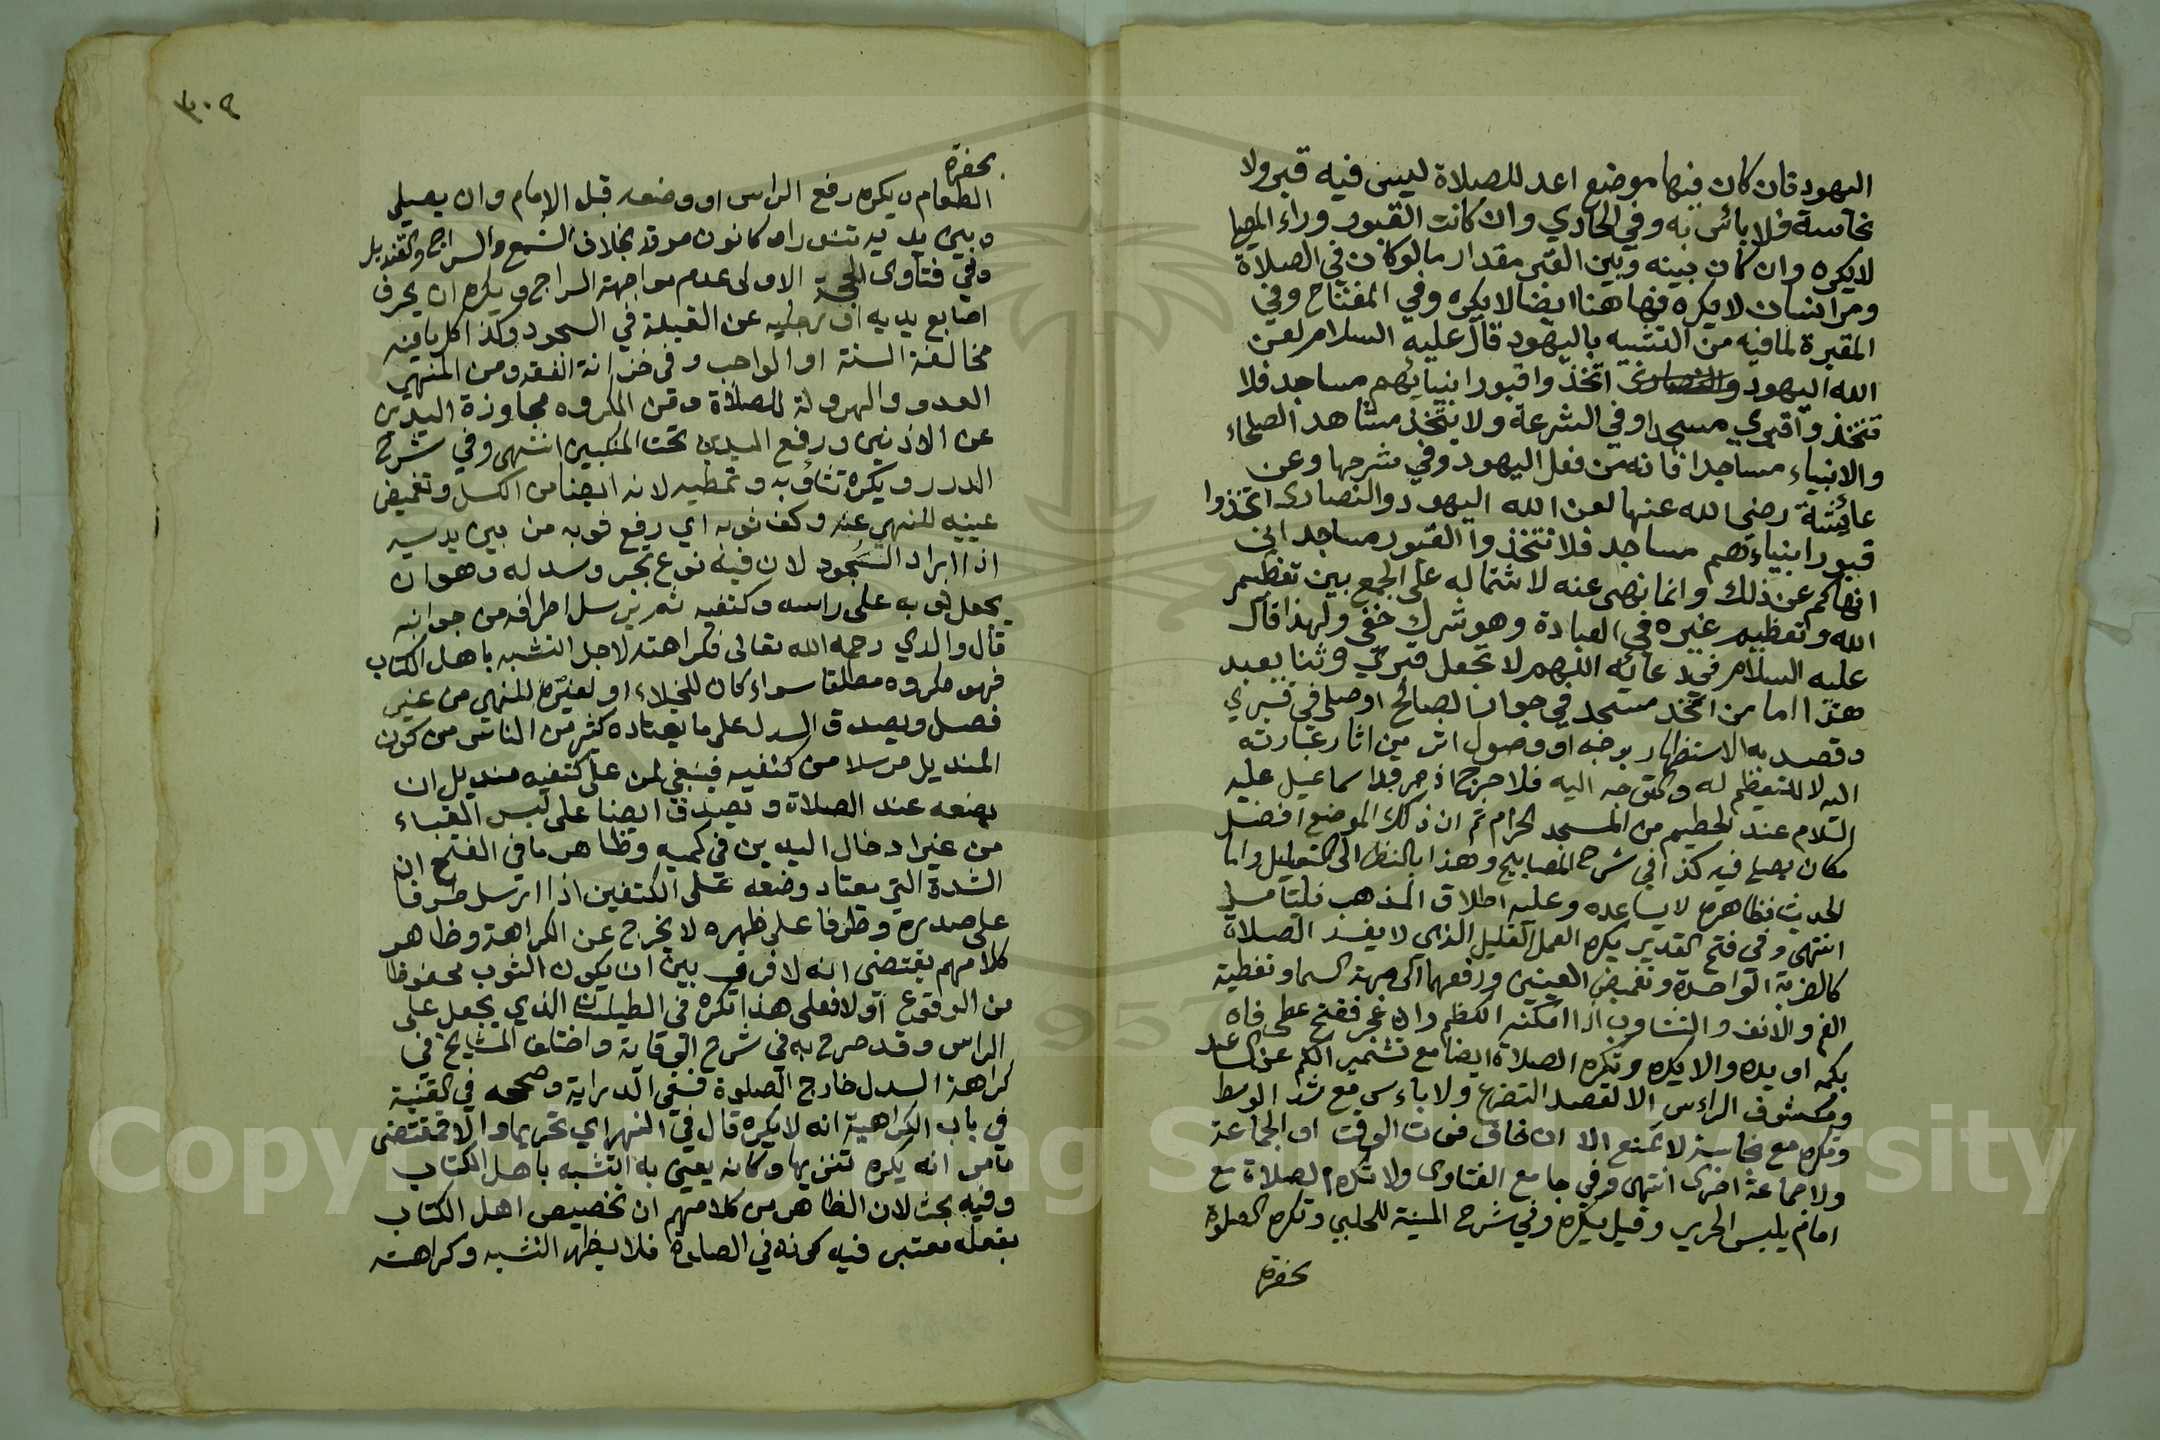 اليهود فان كان فيها موضع اعد للصلاة ليس فيه قبر ولا
نجاسة فلا باس به وفي الحاوي وان كانت القبور وراء المصلي
لا يكره وان كان بينه وبين القبر مقدار ما لو كان في الصلاة
ومر انسان لا يكره فهاهنا ايضا لا يكره وفي المفتاح وفي
المقبرة لما فيه من التشبيه باليهود قال عليه السلام لعن
الله اليهود والنصارى اتخذوا قبور انبيائهم مساجد فلا
تتخذوا قبري مسجدا وفي الشرعة ولا يتخذ مشاهد الصلحاء
والانبياء مساجد فانه من فعل اليهود وفي شرحها وعن
عائشة رضي الله عنها لعن الله اليهود والنصارى اتخذوا
قبور انبياءهم مساجد فلا تتخذوا القبور مساجد اني
انهاكم عن ذلك وانما نهى عنه لاشتماله على الجمع بين تعظيم
الله وتعظيم غيره في العبادة وهو شرك خفي ولهذا قال
عليه السلام في دعائه اللهم لا تجعل قبري وثنا يعبد
هذا اما من اتخذ مسجد في جوار الصالح او صلى في قبري
وقصد به الاستظهار بروحه او وصول اثر من اثار عبارته
اليه لا للتعظيم له والتوجه اليه فلا حرج اذ مرقد اسماعيل عليه
السلام عند الحطيم من المسجد الحرام ثم ان ذلك الموضع افضل
مكان يصلى فيه كذا في شرح المصابيح وهذا بالنظر الى التعليل واما
الحديث فظاهره لا يساعده وعليه اطلاق المذهب فليتامل
انتهى وفي فتح القدير يكره العمل القليل الذي لا يفسد الصلاة
كالضربة الواحدة وتغميض العينين ورفعهما الى جهة السما وتغطية
الفم والانف والتثاوب اذا امكنه الكظم وان عجز ففتح غطى فاه
بكمه او يده والا يكره وتكره الصلاة ايضا مع تشمير الكم عن الساعد
ومكشوف الراءس الا لقصد التضرع ولا باءس مع شد الوسط
وتكره مع نجاسة لا تمنع الا ان خاف فوات الوقت او الجماعة
ولا جماعة اخرى انتهى وفي جامع الفتاوى ولا تكره الصلاة مع
امام يلبس الحرير وقيل يكره وفي شرح المنية للحلبي وتكره الصلوة
بحضرة
٣٠٩
بحضرة
الطعام ويكره رفع الراس او وضعه قبل الامام وان يصلي
وبين يديه تنور او كانون موقد بخلاف الشمع والسراج والقنديل
وفي فتاوى الحجة الاولى عدم مواجهة السراج ويكره ان يحرف
اصابع يديه او رجليه عن القبلة في السجود وكذا كل ما فيه
مخالفة السنة او الواجب وفي خزانة الفقه ومن المنهي
العدو والهرولة للصلاة ومن المكروه مجاوزة اليدين
عن الاذنين ورفع اليدين تحت المنكبين انتهى وفي شرح
الدرر ويكره تثاوبه وتمطيه لانه ايضا من الكسل وتغميض
عينيه للنهي عنه وكف ثوبه اي رفع ثوبه من بين يديه
اذا اراد السجود لان فيه نوع تجبر وسدله وهو ان
يجعل ثوبه على راسه وكتفيه ثم يرسل اطرافه من جوانبه
قال والدي رحمه الله تعالى فكراهته لاجل التشبه باهل الكتاب
فهو مكروه مطلقا سواء كان للخيلاء او لغيره للنهي من غير
فصل ويصدق السدل على ما يعتاده كثير من الناس من كون
المنديل مرسلا من كتفيه فينبغي لمن على كتفيه منديل ان
يضعه عند الصلاة ويصدق ايضا على لبس القباء
من غير ادخال اليدين في كميه وظاهر ما في الفتح ان
الشدة التي يعتاد وضعه على الكتفين اذا ارسل طرفا
على صدره وطرفا على ظهره لا يخرج عن الكراهة وظاهر
كلامهم يقتضى انه لا فرق بين ان يكون الثوب محفوظا
من الوقوع او لا فعلى هذا تكره في الطيلسان الذي يجعل على
الراس وقد صرح به في شرح الوقاية واختلف المشايخ في
كراهة السدل خارج الصلوة ففي الدراية وصححه في القنية
في باب الكراهية انه لا يكره قال في النهر اي تحريما والا فمقتضى
ما مر انه يكره تنزيها وكانه يعني به التشبه باهل الكتاب
وفيه بحث لان الظاهر من كلامهم ان تخصيص اهل الكتاب
بفعله معتبر فيه كونه في الصلوة فلا يظهر التشبه وكراهته
Copyright © King Saud University
1957